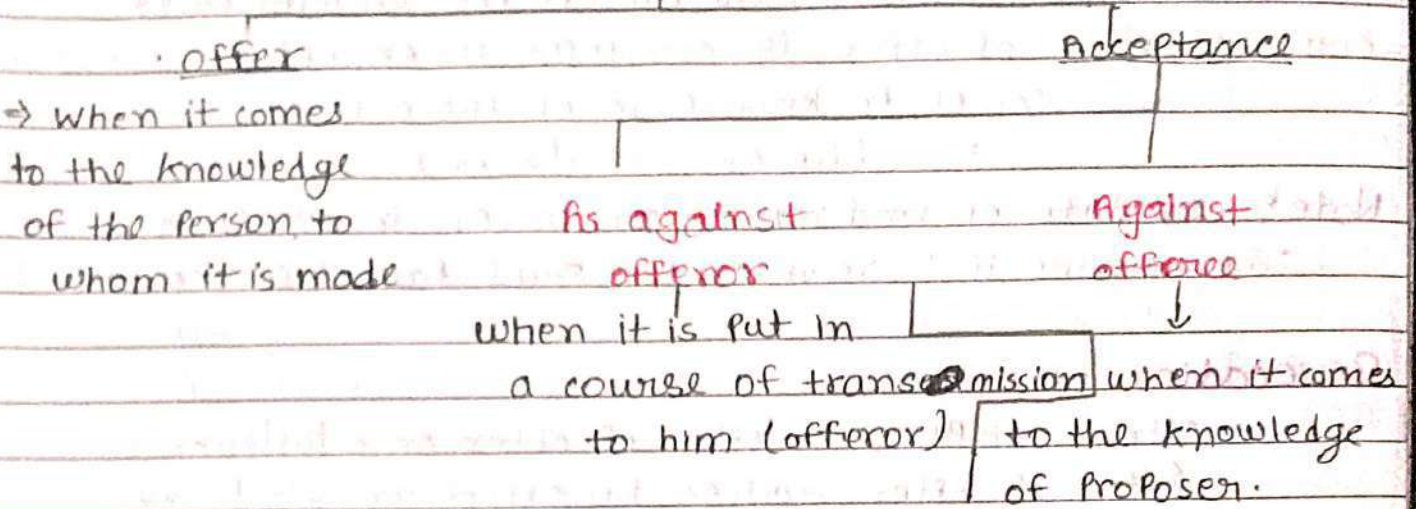 offer
Ackeptance
⇒ when it comes
to the knowledge
of the Person, to
whom it is made
As against
offeror
when it is Put in
a course of transmission
to him (offeror)
Against
offeree
when it comes
to the knowledge
of Proposer.